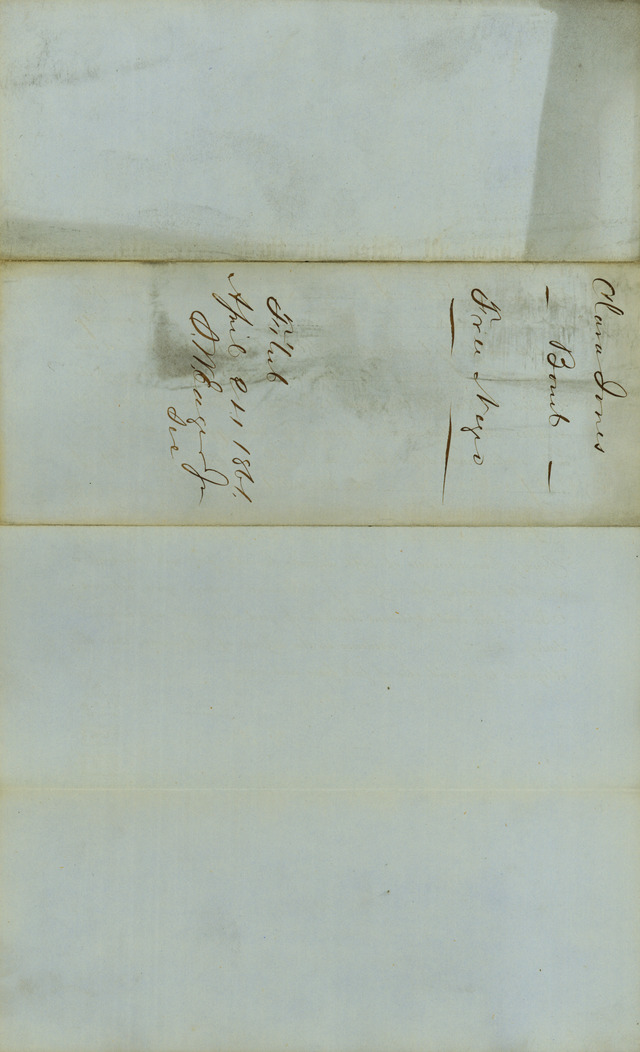 Clara Jones
— Bond —
Free Negro
Filed
April 24 1861.
Jr